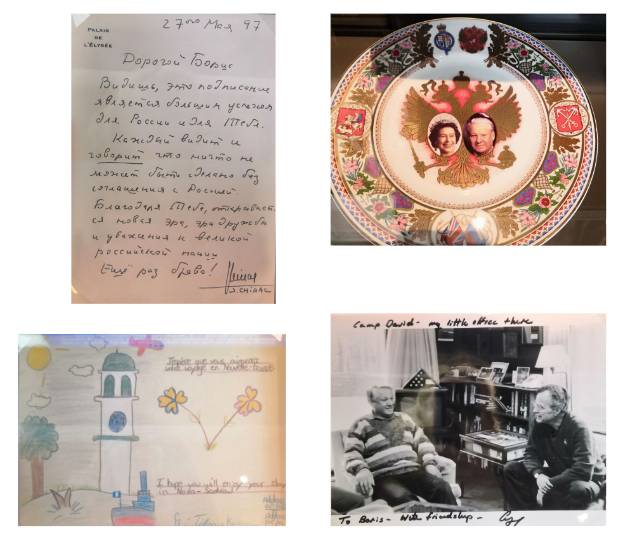 PALAIS
DE
L'ÉLYSÉE
27ого Мая 97
Дорогой Борис
Видишь, это подписание
является большим успехом
для России и для Тебя.
Каждый видит и
говорит что ничто не
может быть сделано без
соглашения с Россией
Благодаря Тебе, открывает
ся новая эра, эра дружбы
и уважения к великой
российской нации
Ещё раз браво!
J. CHIRAC
J'espère que vous
voyage en
I hope you will enjoy your stay
in Nova-Scotia!
Camp David - my little office there
To Boris - with friendship -